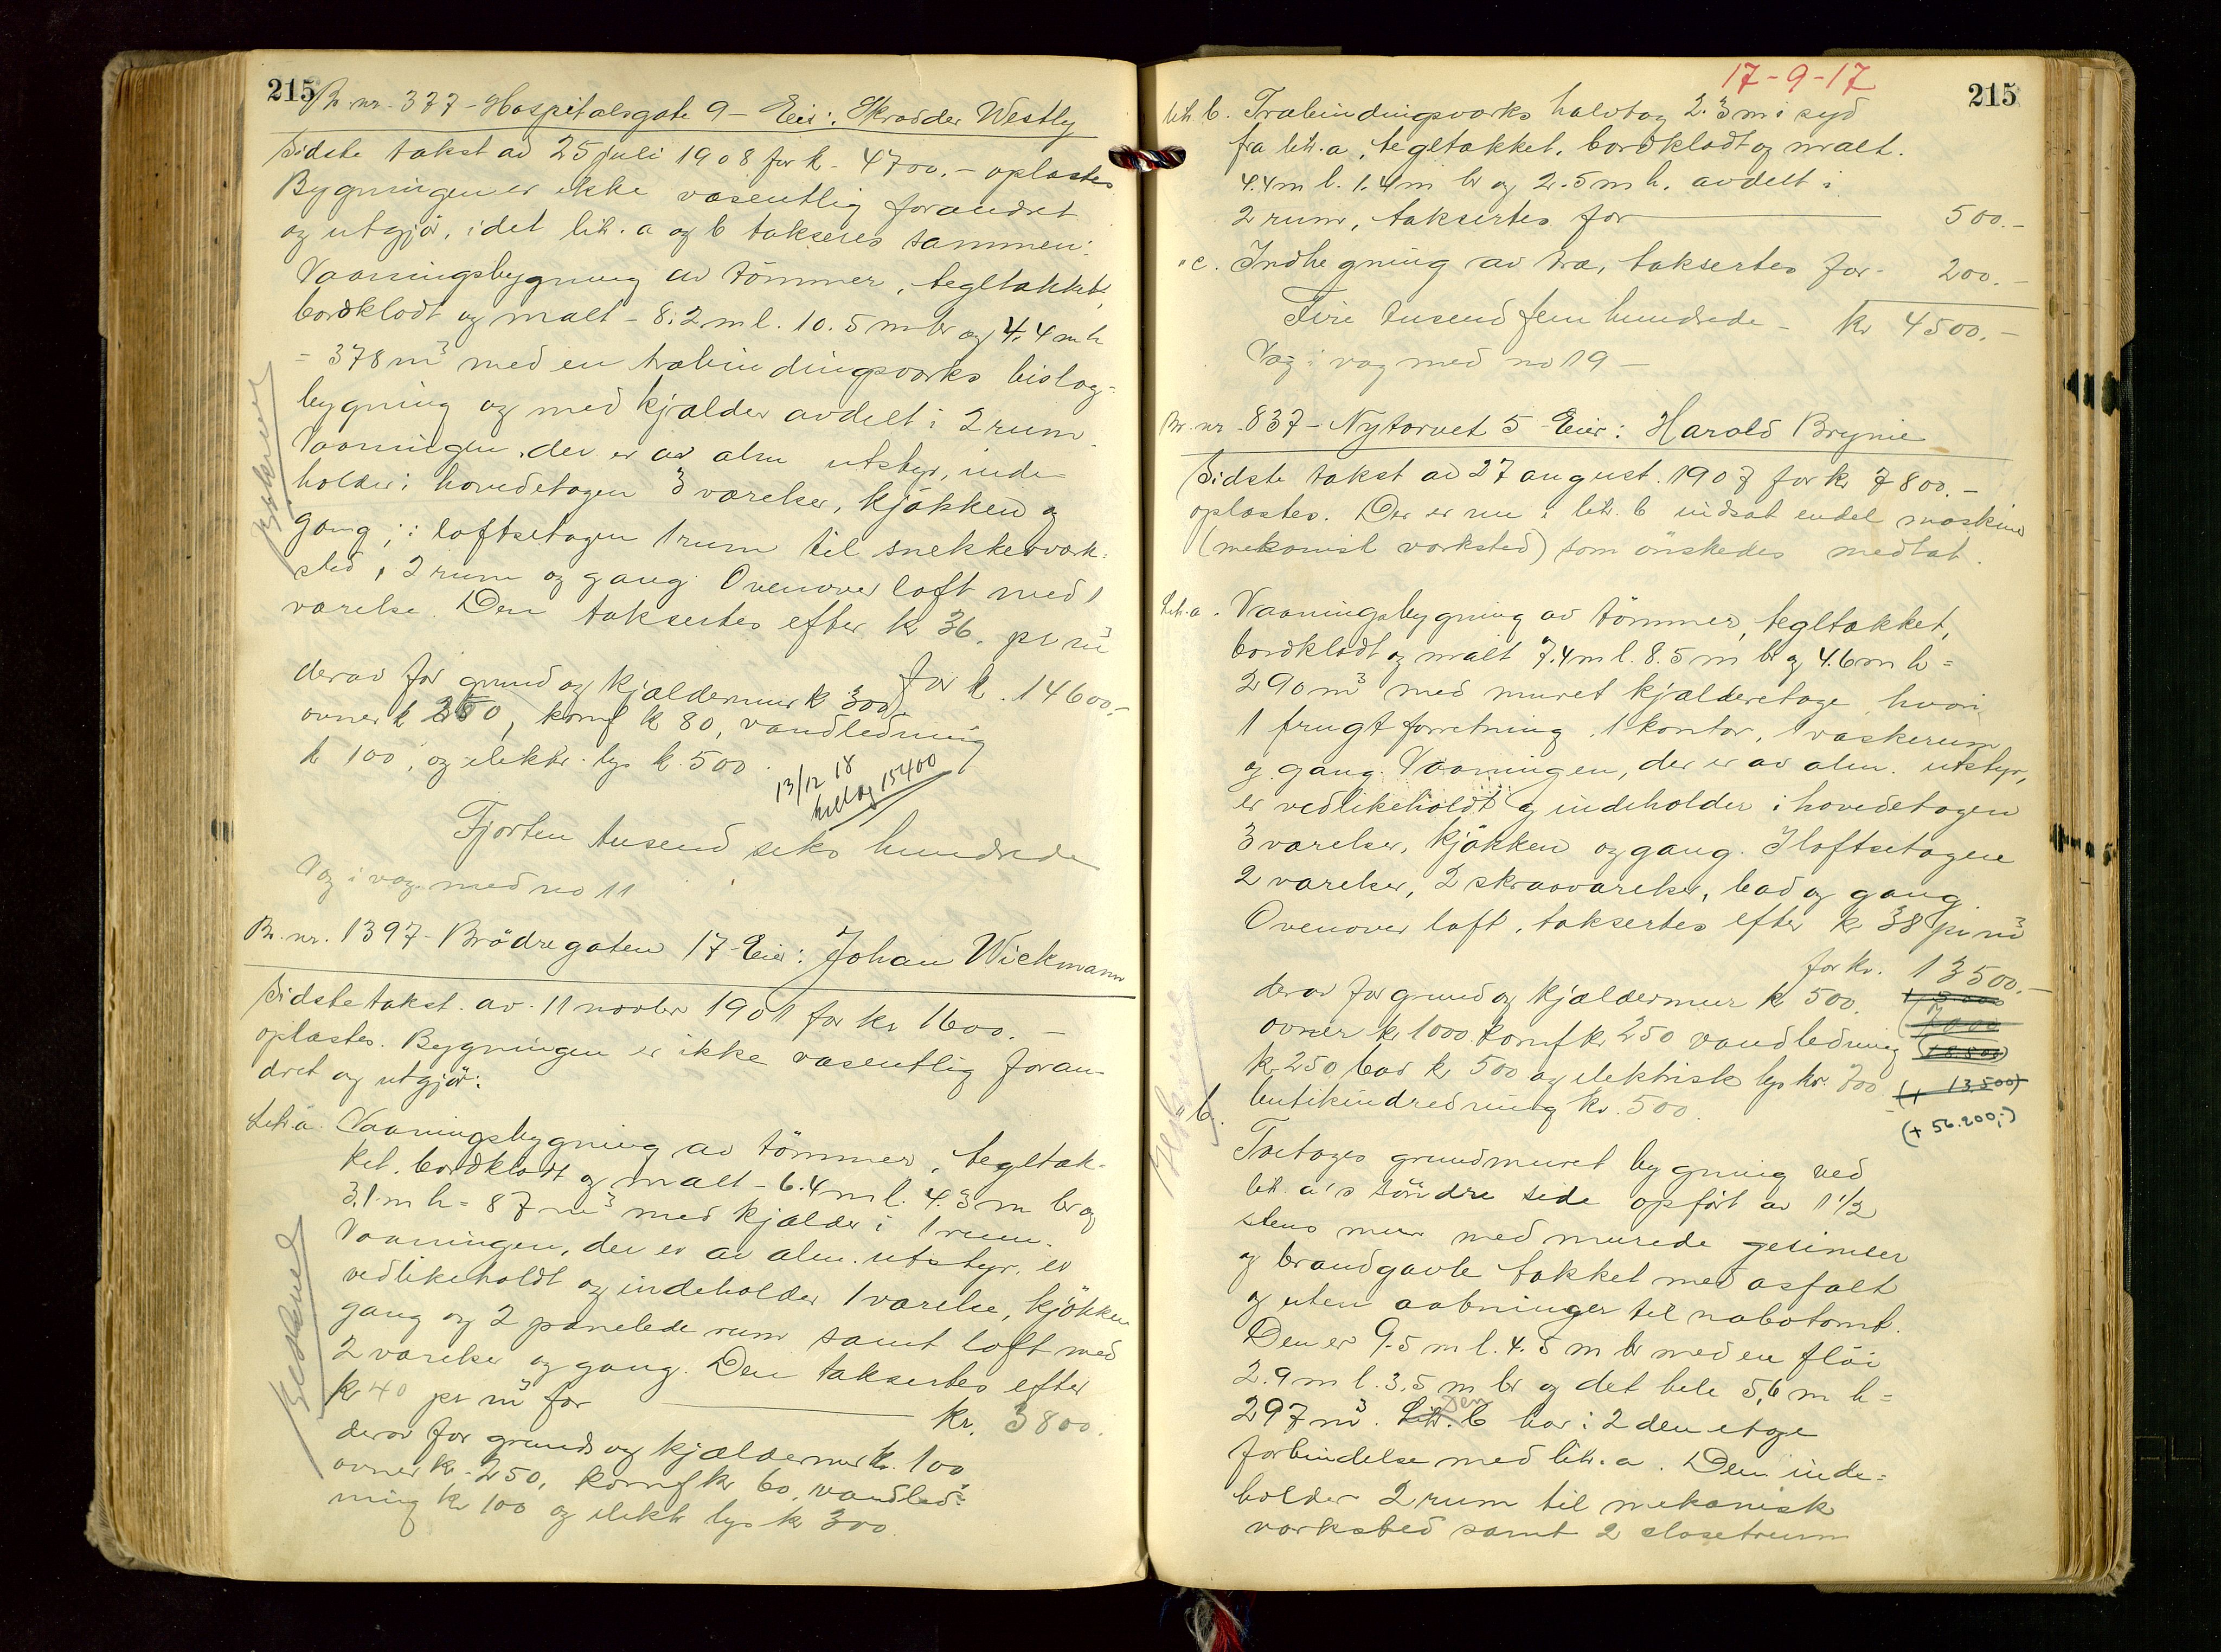 215
Br. nr. 377 - Hospitalsgate 9 - Eier: Skrædder Westly
Sidste takst av 25 juli 1908 for k. 4700.- oplæstes
Bygningen er ikke væsentlig forandret
og utgjör, idet litr. a og b takseres sammen:
Vaaningsbygning av tömmer, tegltækket,
bordklædt og malt - 8.2 m l. 10.5 m br og 4.4 m h
= 378 m³ med en træbindingsværks bislag-
bygning og med kjælder avdelt i 2 rum.
Vaaningen, der er av alm utstyr, inde-
holder i hovedetagen 3 værelser, kjøkken og
gang; i loftsetagen 1 rum til snekkerværk-
sted, 2 rum og gang. Ovenover loft med 1
værelse. Den taksertes efter kr 36. pr m³
for k. 14600.-
derav for grund og kjældermur k 300,
ovner k 250, komf k 80, vandledning
k 100, og elektr. lys k. 500.
13/12 18
tillæg 15400
Fjorten tusend seks hundrede
Væg i væg med no 11
Br. nr. 1397 - Brödregaten 17 - Eier: Johan Wickmann
Sidste takst. av 11 novbr 1901 for kr 1600.-
oplæstes. Bygningen er ikke væsentlig foran-
dret og utgjör:
Litr. a. Vaaningsbygning av tömmer, tegltæk-
ket, bordklædt og malt - 6.4 m l. 4.3 m br og
3.1 m h = 87 m³ med kjælder i 1 rum.
Vaaningen, der er av alm. utstyr, er
vedlikeholdt og indeholder 1 værelse, kjøkken
gang og 2 panelede rum samt loft med
2 værelser og gang. Den taksertes efter
kr 40 pr m³ for kr. 3800.
derav for grund og kjældermur k. 100
ovner kr. 250, komf kr 60, vandled-
ning kr 100 og elektr lys kr 300.
17-9-17
215
litr. b. Træbindingsværks halvtag 2.3 m i syd
fra litr. a, tegltækket, bordklædt og malt.
4.4 m l. 1.4 m br og 2.5 m h. avdelt i
2 rum, taksertes for 500.-
" c. Indhegning av træ, taksertes for - 200.-
Fire tusend fem hundrede - kr 4500.-
Væg i væg med no 19 -
Br. nr. 837 - Nytorvet 5 Eier: Harald Brynie
Sidste takst av 27 august 1907 for kr 7800.-
oplæstes. Der er nu i litr. b indsat endel maskiner
(mekanisk værksted) som önskedes medtat.
Litr. a. Vaaningsbygning av tömmer, tegltækket,
bordklædt og malt 7.4 m l. 8.5 m br og 4.6 m h =
290 m³ med muret kjælderetage, hvori
1 frugtforretning, 1 kontor, 1 vaskerum
og gang. Vaaningen, der er av alm. utstyr,
er vedlikeholdt og indeholder i hovedetagen
3 værelser, kjøkken og gang. I loftsetagen
2 værelser, 2 skraaværelser, bad og gang.
Ovenover loft, taksertes efter kr 38 pr m³
for kr. 13500.-
derav for grund og kjældermur kr 500.
ovner kr 1000. komf kr 250 vandledning
k 250 bad kr 500 og elektrisk lys kr. 700
(+ 13.500)
butikindredning kr. 500.
(+ 56.200,-)
" b.
Toetages grundmuret bygning ved
litr. a's söndre side opfört av 1 1/2
stens mur med murede gesimser
og brandgavle tækket med asfalt
og uten aabninger til nabotomt.
Den er 9.5 m l. 4.5 m br med en flöi
2.9 m l. 3.5 m br og det hele 5,6 m h =
Den
297 m³. Litr. b har i 2den etage
forbindelse med litr. a. Den inde-
holder 2 rum til mekanisk
værksted samt 2 closetrum